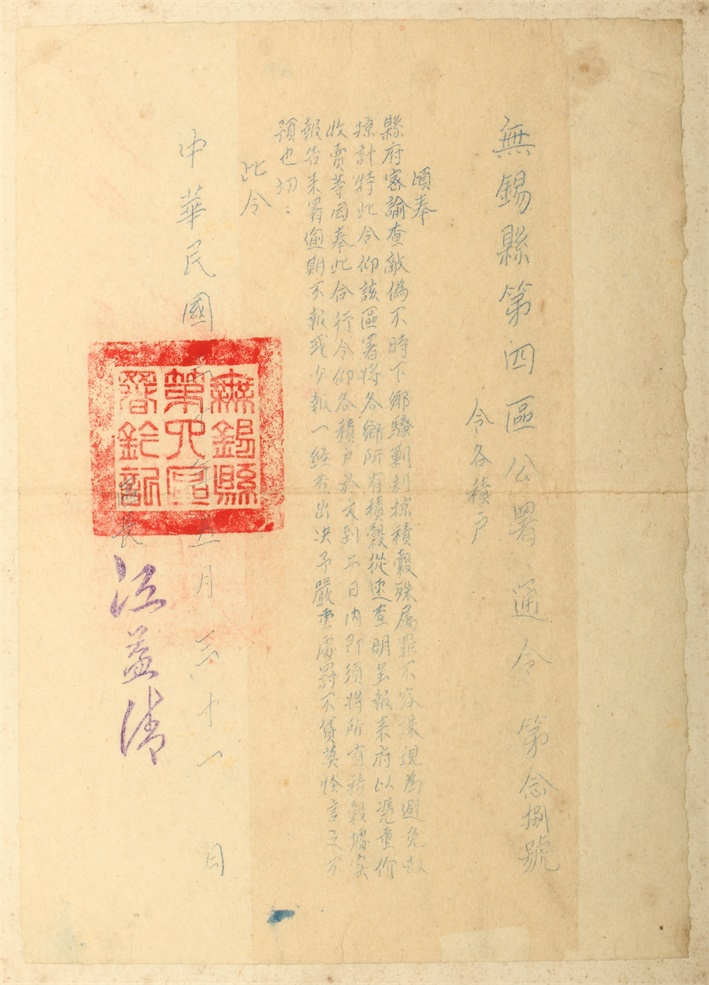 無錫縣第四區公署通令 第念捌號
令各積戶
頃奉
縣府密諭查敵偽不時下鄉騷剿刦掠積穀殊屬罪不容誅現為避免敵
掠計特此令仰該區署將各鄉所有積穀從速查明呈報來府以憑重價
收賣等因奉此合行令仰各積戶於文到二日內所須將所有積穀據實
報告來署逾期不報或少報一經查出決予嚴重處罰不貸莫怪言之不
預也切:
此令
中華民國 年五月三十一日
無錫縣
第四區
署鈐記
區長
江益清